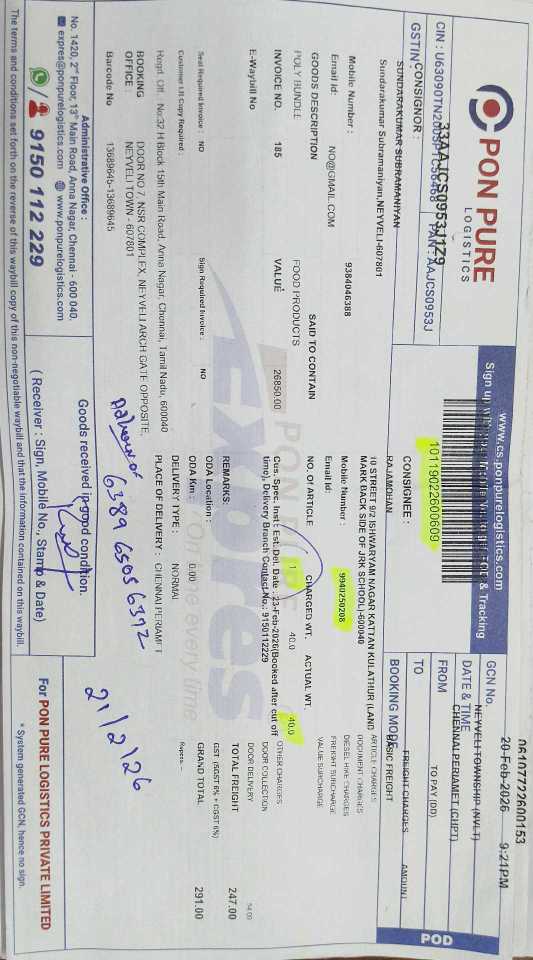 PON PURE
LOGISTICS
CIN : U63090TN2005PTC56468 PAN : AAJCS0953J
GSTIN
33AAJCS0953J1Z9
CONSIGNOR :
SUNDARAKUMAR SUBRAMANIYAN
Sundarakumar Subramaniyan,NEYVELI-607801
Mobile Number : 9384046388
Email Id: NO@GMAIL.COM
GOODS DESCRIPTION SAID TO CONTAIN
POLY BUNDLE FOOD PRODUCTS
INVOICE NO. 185 VALUE 26850.00
E-Waybill No
Seal Required Invoice : NO Sign Required Invoice : NO
Customer Ui Copy Required :
Regd. Off. No:32 H Block 15th Main Road, Anna Nagar, Chennai, Tamil Nadu, 600040
BOOKING OFFICE : DOOR NO 7, NSR COMPLEX, NEYVELI ARCH GATE OPPOSITE,
NEYVELI TOWN - 607801
Barcode No 13689645-13689645
www.cs.ponpurelogistics.com
Sign up with & Tracking
1011902260​0609
CONSIGNEE :
RAJAMOHAN
10 STREET 9/2 ISHWARYAM NAGAR KATTAN KULATHUR (LAND
MARK BACK SIDE OF JRK SCHOOL)-600040
Mobile Number : 9940250208
Email Id:
NO. OF ARTICLE CHARGED WT. ACTUAL WT.
1 40.0 40.0
Cus. Spec. Inst : Est. Del. Date : 23-Feb-2026(Booked after cut off
time), Delivery Branch Contact No.: 9150112229
REMARKS:
ODA Location :
ODA Km : 0.00
DELIVERY TYPE : NORMAL
PLACE OF DELIVERY : CHENNAI PERIAMET
PON PURE
EXpures
On time every time
GCN No. 0610772260​0153
DATE & TIME 20-Feb-2026 9:21PM
FROM NEYVELI TOWNSHIP (NVLT)
TO CHENNAI PERIAMET (CHPT)
BOOKING MODE TO PAY (DD)
FREIGHT CHARGES AMOUNT
BASIC FREIGHT
ARTICLE CHARGES
DOCUMENT CHARGES
DIESEL HIKE CHARGES
FREIGHT SURCHARGE
VALUE SURCHARGE
OTHER CHARGES
DOOR COLLECTION
DOOR DELIVERY
TOTAL FREIGHT 247.00
GST (SGST 6% + CGST 6%)
GRAND TOTAL 291.00
Rupees.
POD
6389 6505 6392
21/2/26
Administrative Office :
No. 1420, 2nd Floor, 13th Main Road, Anna Nagar, Chennai - 600 040.
expres@ponpurelogistics.com www.ponpurelogistics.com
9150 112 229
Goods received in good condition.
( Receiver : Sign, Mobile No., Stamp & Date)
For PON PURE LOGISTICS PRIVATE LIMITED
* System generated GCN, hence no sign.
The terms and conditions set forth on the reverse of this waybill copy of this non-negotiable waybill and that the information contained on this waybill.